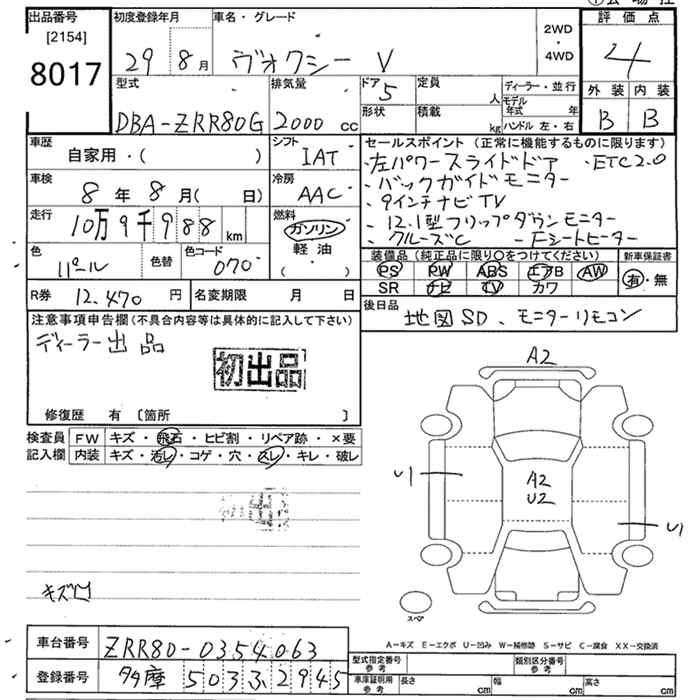 出品番号 [2154] 8017
初度登録年月 29 8月
車名・グレード ヴォクシー V
2WD・4WD
評価点 4
外装 内装
B B
型式 DBA-ZRR80G
排気量 2000 cc
ドア 5
形状
定員 人
積載 kg
ディーラー・並行
モデル年式 年
ハンドル 左・右
車歴 自家用・( )
シフト IAT
車検 8年 8月( 日)
冷房 AAC
走行 10万9千988 km
燃料 ガソリン 軽油 ( )
色 パール 色替 色コード 070
R券 12,470円
名変期限 月 日
セールスポイント (正常に機能するものに限ります)
・左パワースライドドア ・ETC2.0
・バックガイドモニター
・9インチナビTV
・12.1型フリップダウンモニター
・クルーズC -Fシートヒーター
装備品 (純正品に限り○をつけてください)
PS PW ABS エアB AW
SR ナビ TV カワ
新車保証書
有・無
後日品 地図SD、モニターリモコン
注意事項申告欄 (不具合内容等は具体的に記入して下さい)
ディーラー出品
初出品
修復歴 有 〔箇所 〕
検査員記入欄
FW キズ・飛石・ヒビ割・リペア跡・×要
内装 キズ・汚レ・コゲ・穴・スレ・キレ・破レ
キズ凹
A2
U1
A2
U2
U1
A2
スペア
A-キズ E-エクボ U-凹み W-補修跡 S-サビ C-腐食 XX-交換済
車台番号 ZRR80-0354063
登録番号 多摩 503 ふ 2945
型式指定番号 参考
類別区分番号 参考
車庫証明用 参考 長さ cm 幅 cm 高さ cm